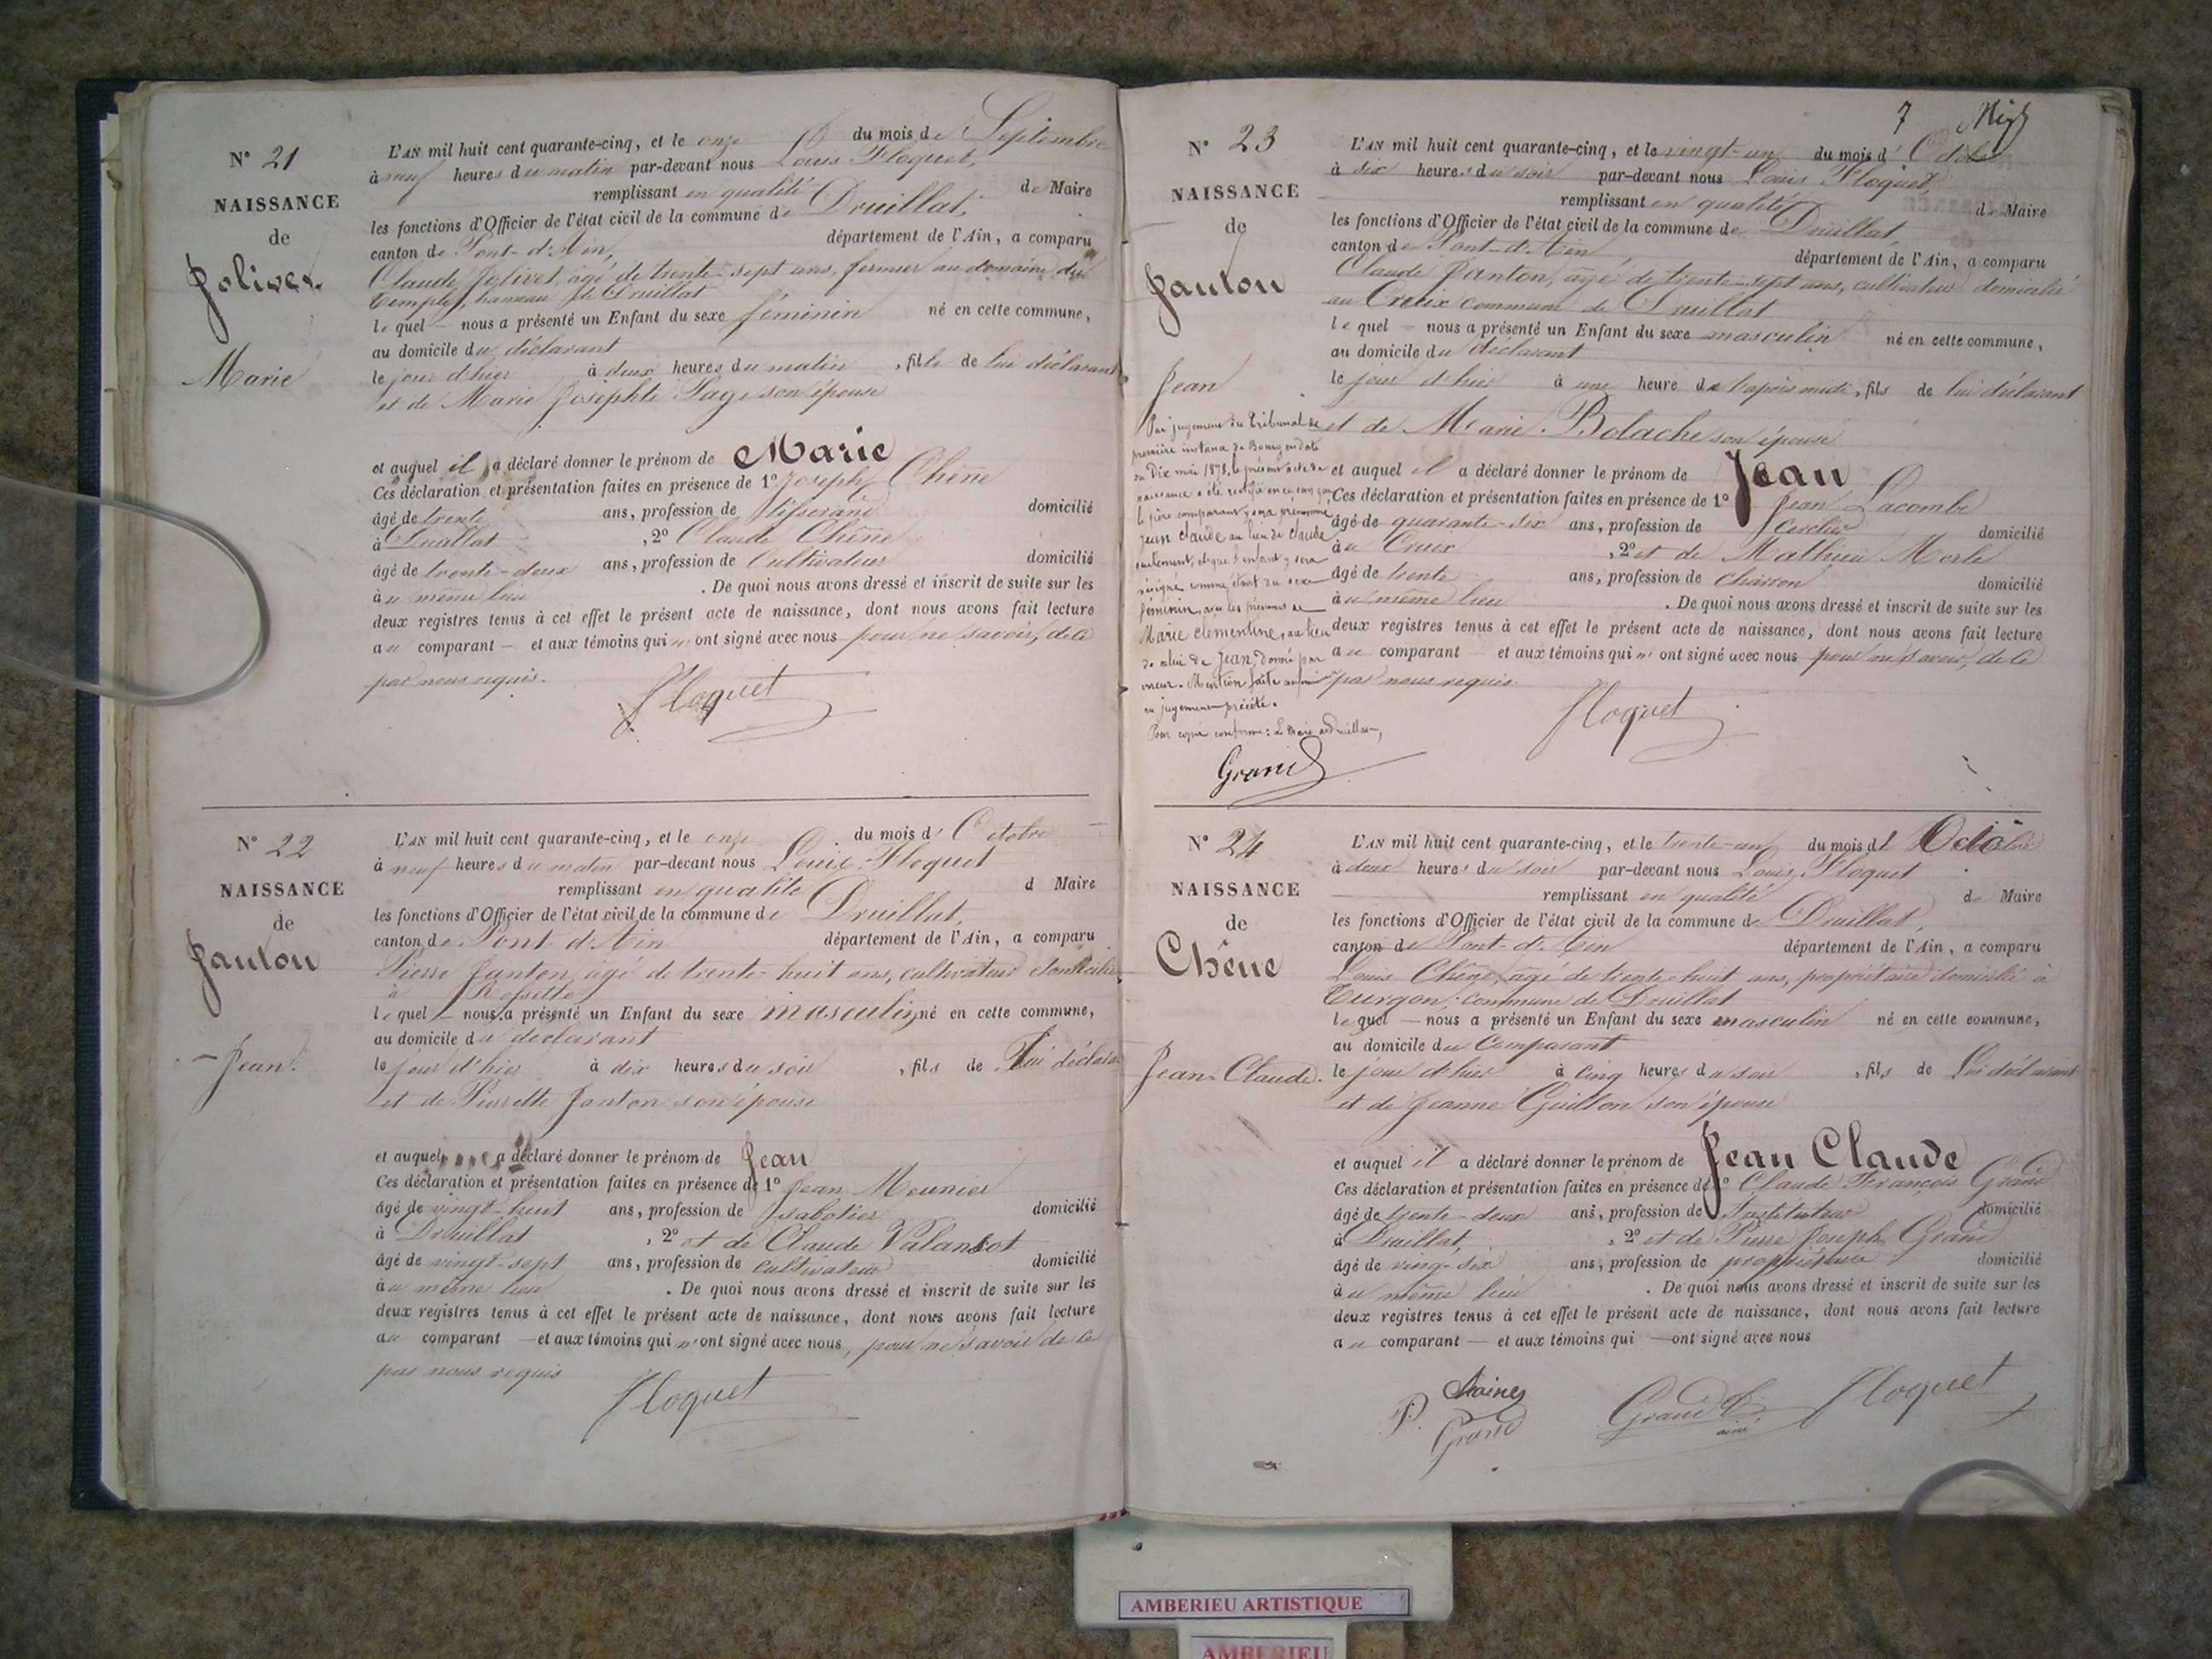 N° 21
NAISSANCE
de
Jolivet
Marie
L'AN mil huit cent quarante-cinq, et le onze du mois de Septembre
à neuf heures du matin par-devant nous Louis Floquet,
remplissant en qualité de Maire
les fonctions d'Officier de l'état civil de la commune de Druillat,
canton de Pont-d'Ain, département de l'Ain, a comparu
Claude Jolivet, âgé de trente-sept ans, fermier au domaine du
Temple, hameau de Druillat
le quel — nous a présenté un Enfant du sexe féminin né en cette commune,
au domicile du déclarant
le jour d'hier à deux heures du matin , fille de lui déclarant
et de Marie Josephte Page son épouse
et auquel il a déclaré donner le prénom de Marie
Ces déclaration et présentation faites en présence de 1° Joseph Chêne
âgé de trente ans, profession de tisserand domicilié
à Druillat , 2° Claude Chêne
âgé de trente-deux ans, profession de Cultivateur domicilié
au même lieu . De quoi nous avons dressé et inscrit de suite sur les
deux registres tenus à cet effet le présent acte de naissance, dont nous avons fait lecture
au comparant — et aux témoins qui n'ont signé avec nous pour ne savoir, de ce
par nous requis.
Floquet
N° 22
NAISSANCE
de
Janton
Jean
L'AN mil huit cent quarante-cinq, et le onze du mois d'Octobre
à neuf heures du matin par-devant nous Louis Floquet
remplissant en qualité d Maire
les fonctions d'Officier de l'état civil de la commune de Druillat,
canton de Pont-d'Ain département de l'Ain, a comparu
Pierre Janton, âgé de trente-huit ans, cultivateur domicilié
à
le quel — nous a présenté un Enfant du sexe masculin, né en cette commune,
au domicile du déclarant
le jour d'hier à dix heures du soir , fils de Lui déclarant
et de Pierrette Janton son épouse
et auquel a déclaré donner le prénom de Jean
Ces déclaration et présentation faites en présence de 1° Jean Meunier
âgé de vingt-huit ans, profession de sabotier domicilié
à Druillat , 2° et de Claude
âgé de vingt-sept ans, profession de cultivateur domicilié
au même lieu . De quoi nous avons dressé et inscrit de suite sur les
deux registres tenus à cet effet le présent acte de naissance, dont nous avons fait lecture
au comparant — et aux témoins qui n'ont signé avec nous, pour ne savoir de ce
par nous requis
Floquet
7
N° 23
NAISSANCE
de
Janton
Jean
Par jugement du Tribunal de
première instance de Bourg en date
du Dix mai 1878, le présent acte de
naissance a été rectifié en ce sens que
le père comparant y sera prénommé
Jean Claude au lieu de Claude
seulement, et que l'enfant y sera
désigné comme étant du sexe
féminin, avec les prénoms de
Marie Clementine, au lieu
de celui de Jean, donné par
erreur. Mention faite
du jugement précité.
Pour copie conforme: Le Maire de Druillat,
Grand
L'AN mil huit cent quarante-cinq, et le vingt-un du mois d'Octobre
à six heures du soir par-devant nous Louis Floquet,
remplissant en qualité de Maire
les fonctions d'Officier de l'état civil de la commune de Druillat,
canton de Pont-d'Ain département de l'Ain, a comparu
Claude Janton, âgé de trente-sept ans, cultivateur domicilié
au Creux commune de Druillat
le quel — nous a présenté un Enfant du sexe masculin né en cette commune,
au domicile du déclarant
le jour d'hier à une heure de l'après midi, fils de lui déclarant
et de Marie Bolache son épouse
et auquel il a déclaré donner le prénom de Jean
Ces déclaration et présentation faites en présence de 1° Jean Lacombe
âgé de quarante-six ans, profession de Cerclier domicilié
au Creux , 2° et de Mathieu Merle
âgé de trente ans, profession de charron domicilié
au même lieu . De quoi nous avons dressé et inscrit de suite sur les
deux registres tenus à cet effet le présent acte de naissance, dont nous avons fait lecture
au comparant — et aux témoins qui n'ont signé avec nous pour ne savoir, de ce
par nous requis.
Floquet
N° 24
NAISSANCE
de
Chêne
Jean-Claude.
L'AN mil huit cent quarante-cinq, et le trente-un du mois d'Octobre
à deux heures du soir par-devant nous Louis Floquet
remplissant en qualité de Maire
les fonctions d'Officier de l'état civil de la commune de Druillat,
canton de Pont-d'Ain département de l'Ain, a comparu
Louis Chêne, âgé de trente-huit ans, propriétaire domicilié à
Turgon commune de Druillat
le quel — nous a présenté un Enfant du sexe masculin né en cette commune,
au domicile du Comparant
le jour d'hier à cinq heures du soir , fils de Lui déclarant
et de Jeanne Guillon son épouse
et auquel il a déclaré donner le prénom de Jean Claude
Ces déclaration et présentation faites en présence de 1° Claude François Grand
âgé de trente-deux ans, profession de Instituteur domicilié
à Druillat, , 2° et de Pierre Joseph Grand
âgé de vingt-six ans, profession de propriétaire domicilié
au même lieu . De quoi nous avons dressé et inscrit de suite sur les
deux registres tenus à cet effet le présent acte de naissance, dont nous avons fait lecture
au comparant — et aux témoins qui — ont signé avec nous
P. Grand
Grand
ainé
Floquet
AMBERIEU ARTISTIQUE
AMBERIEU